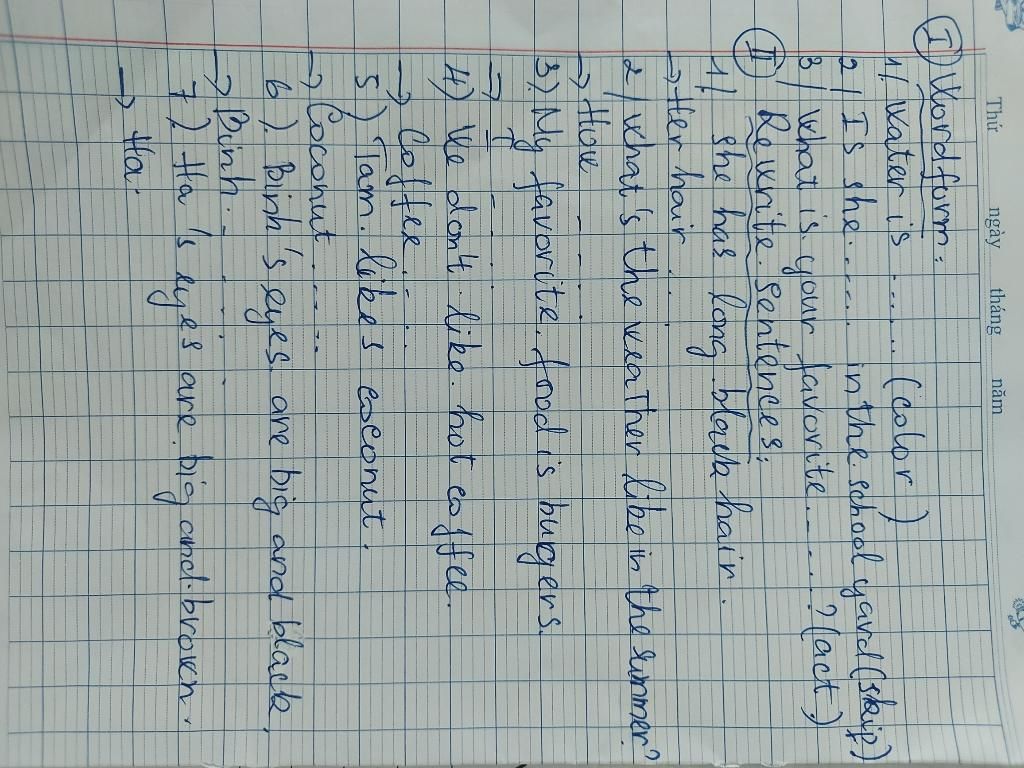 Thứ ngày tháng năm
I Word form:
1/ Water is ..... (color)
2/ Is she ...... in the school yard (skip)
3/ What is your favorite ......? (act)
II Rewrite sentences:
1/ she has long black hair.
→ Her hair . .
2/ What's the weather like in the summer?
→ How - - - -
3). My favorite food is burgers.
→ I - - - -
4) We don't like hot coffee.
→ Coffee . - . .
5) Tam like s coconut.
→ Coconut .....
6). Binh's eyes are big and black,
→ Binh. - . - .
7). Ha's eyes are big and brown.
→ Ha.